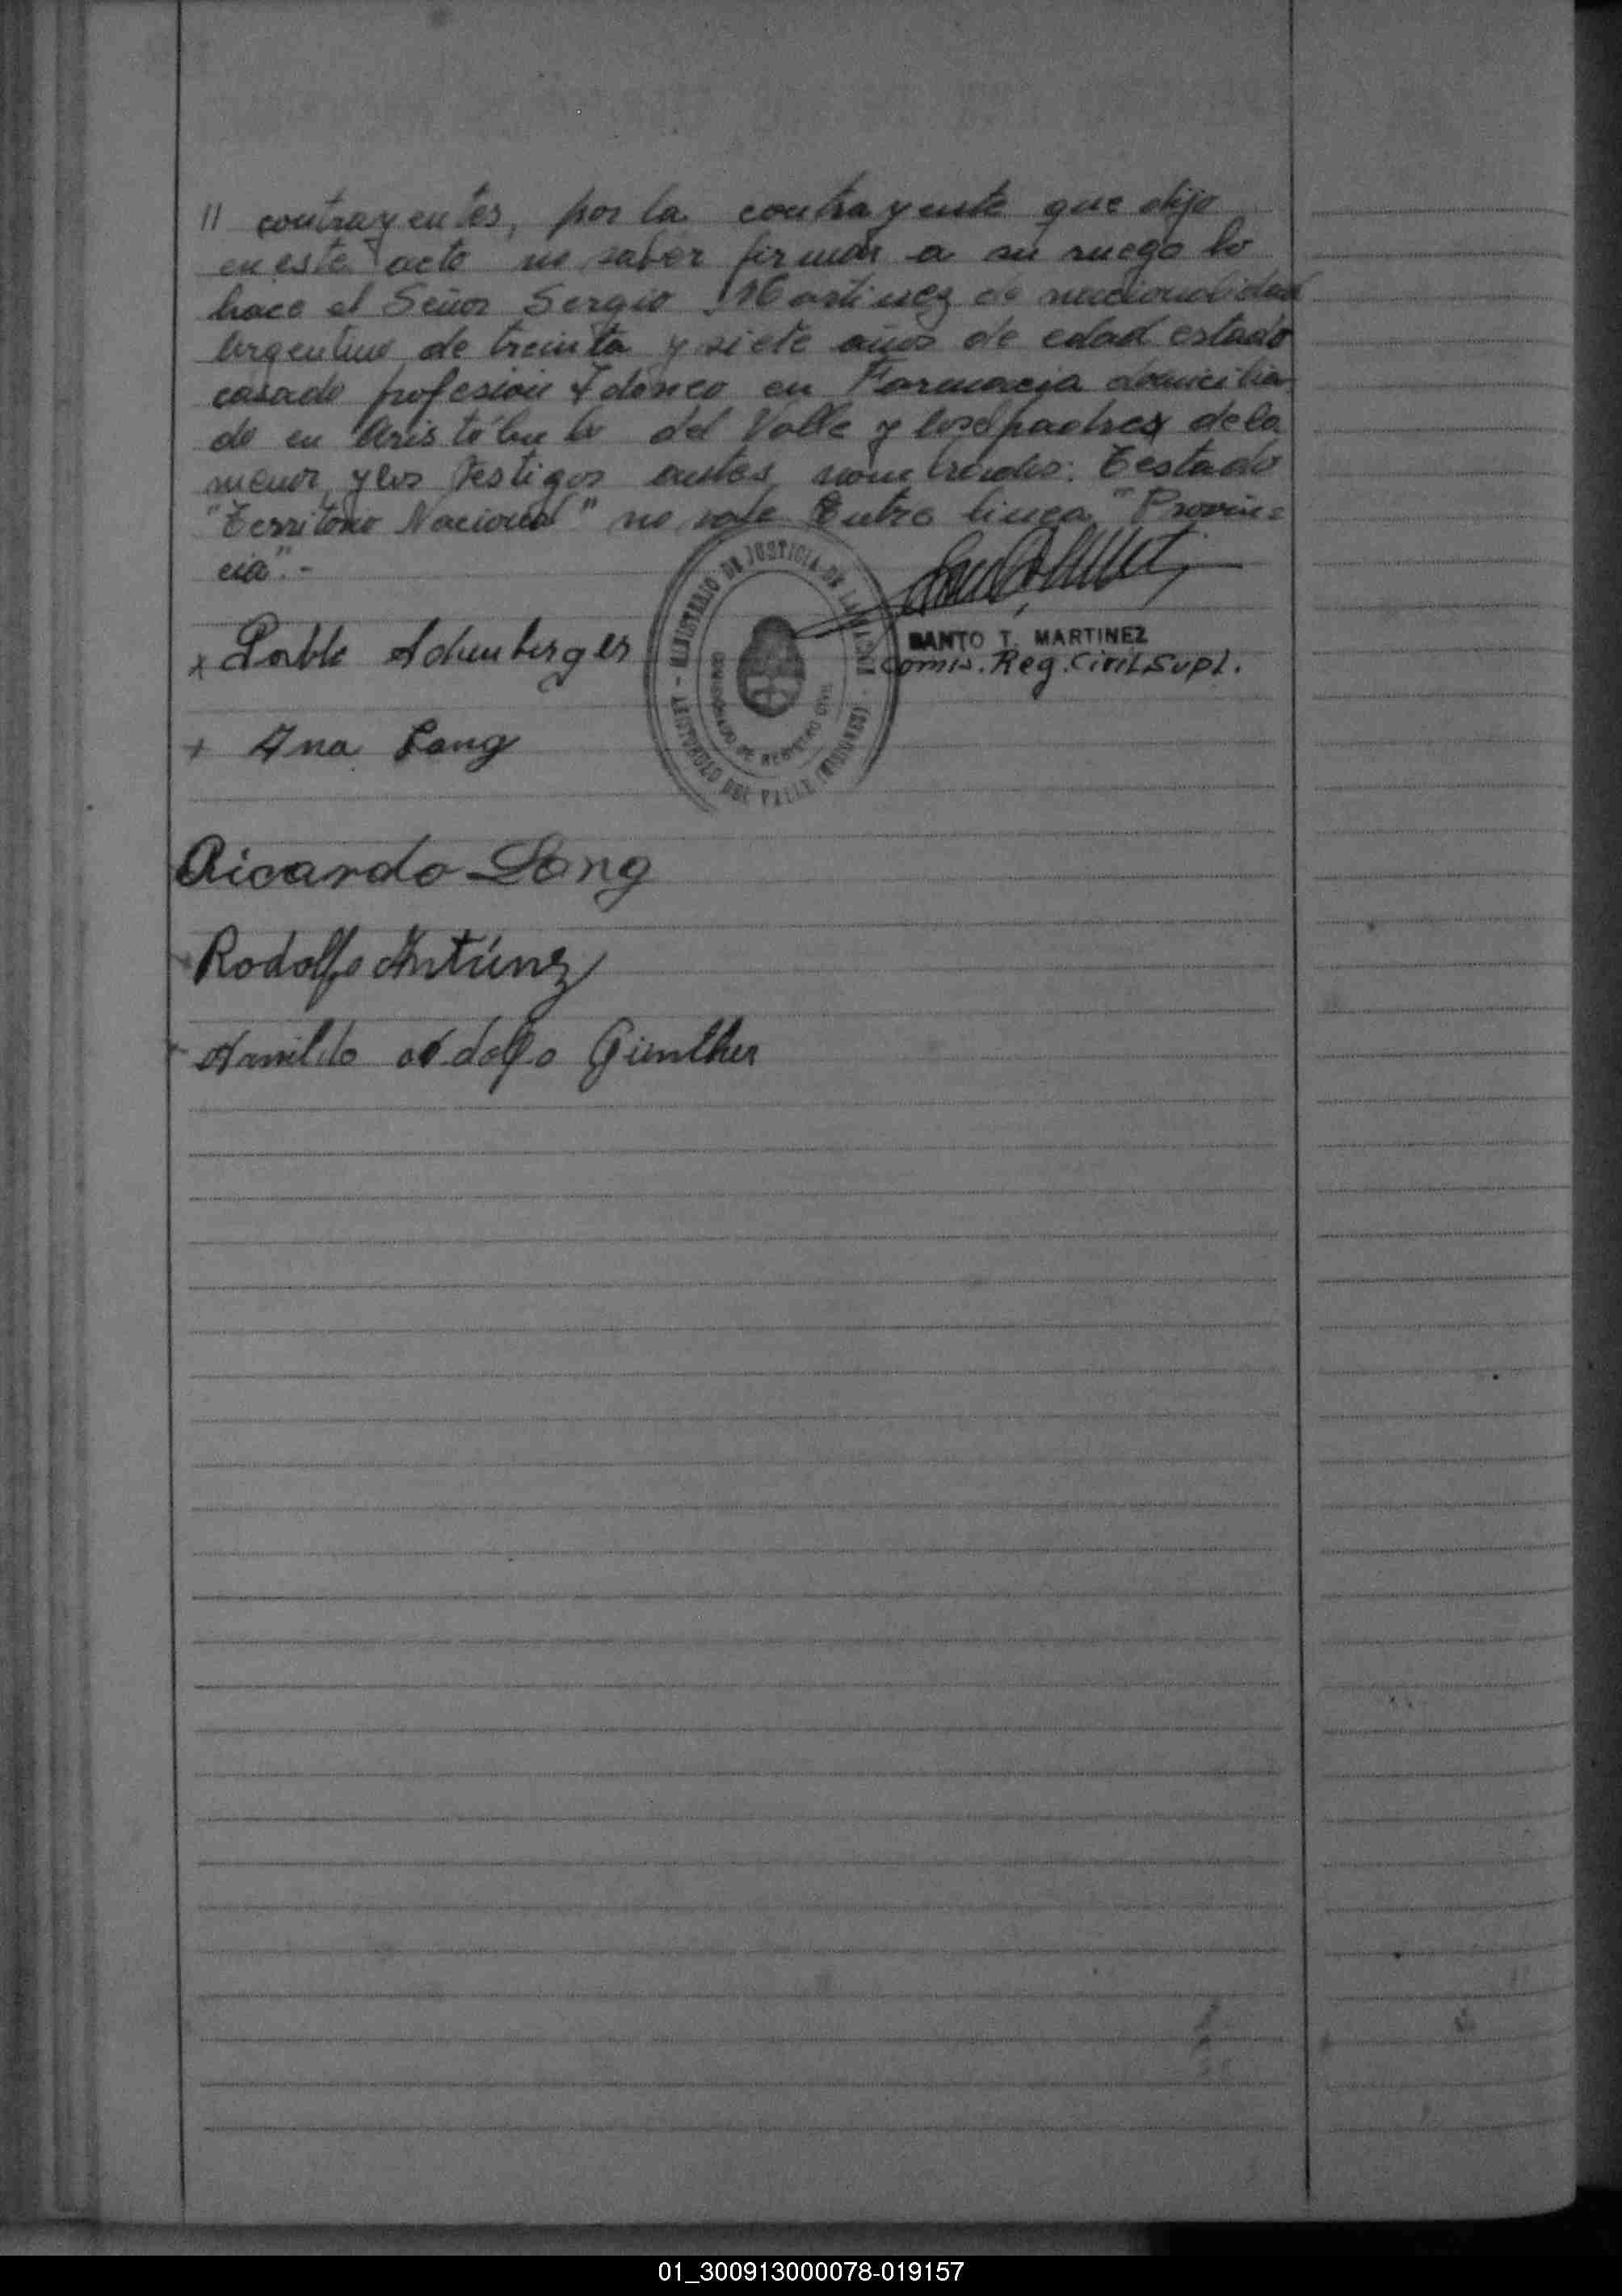 // contrayentes, por la contrayente que dijo
en este acto no saber firmar a su ruego lo
hace el Señor Sergio Martinez de nacionalidad
Argentino de treinta y siete años de edad estado
casado profesion Idóneo en Farmacia domicilia
do en Aristóbulo del Valle y los padres de la
menor, y los testigos antes nombrados. Testado
"Territorio Nacional" no vale Entre linea "Provin=
cia".-
MINISTERIO DE JUSTICIA DE LA NACION
ARISTOBULO DEL VALLE (MISIONES)
REGISTRO CIVIL
SANTO T. MARTINEZ
Comis. Reg. Civil Supl.
x Pablo
+ Ana Lang
Ricardo Lang
Rodolfo Antúnez
Adolfo Günther
01_300913000078-019157